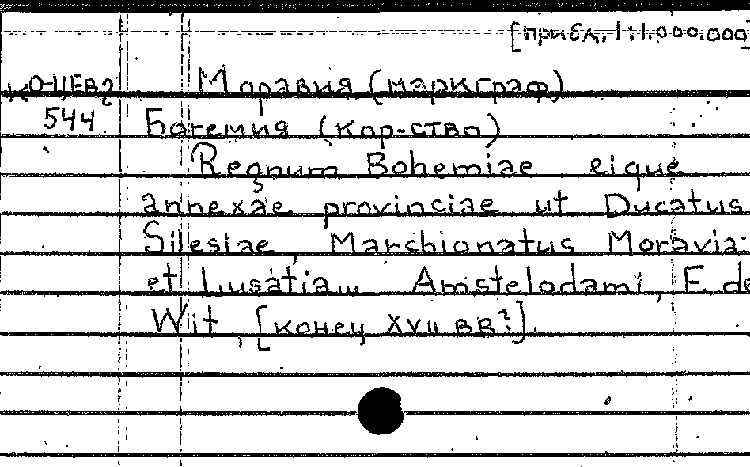 [прибл. 1:1.000.000]
Ко-11,Ев2 Моравия (маркграф)
544 Богемия (кор-ство)
Regnum Bohemiae eique
annexae provinciae ut Ducatus
Silesiae, Marchionatus Moravia
et Lusatia... Amstelodami, F. de
Wit, [конец XVII вв?].